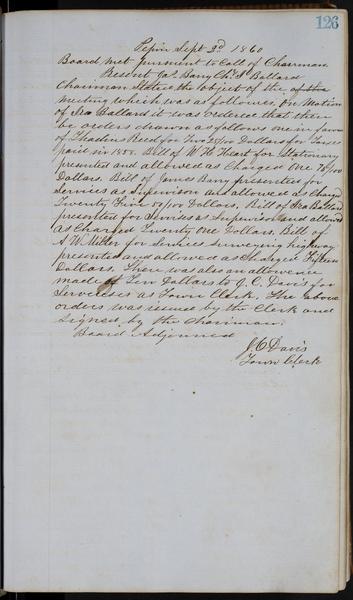 126
Pepin Sept 2d 1860
Board met pursuant to Call of Chairman
Present Jas. Barry Chs. & Ballard
Chairman Stated the object of the
meeting which was as follows, On Motion
of Geo Ballard it was ordered that there
be orders drawn as follows one in favor
of Reed for Two Dollars for Taxes
paid in 185 . Bill of W. H. Heart for Stationary
presented and allowed as Charged One 75/100
Dollars. Bill of James Barry presented for
Services as Supervisor and allowed as Charged
Twenty Five 50/100 Dollars, Bill of Geo Ballard
presented for Services as Supervisor and allowed
as Charged Twenty One Dollars. Bill of
A W. Miller for Services Surveying highway
presented and allowed as charged Fifteen
Dollars. There was also an allowence
made of Ten Dollars to J. C. Davis for
Serviceses as Town Clerk. The above
orders was issued by the Clerk and
Signed by the Chairman.
Board Adjourned
J C Davis
Town Clerk